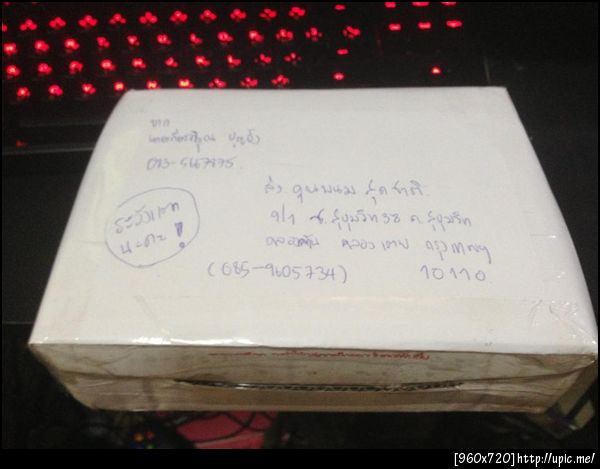 จาก
083-5467975
ระวังแตก
นะคะ!
ส่ง คุณพนม สุดชาติ
9/1 ซ.สุขุมวิท 38 ถ.สุขุมวิท
คลองตัน คลองเตย กรุงเทพฯ
(085-9605734) 10110
[960x720]http://upic.me/